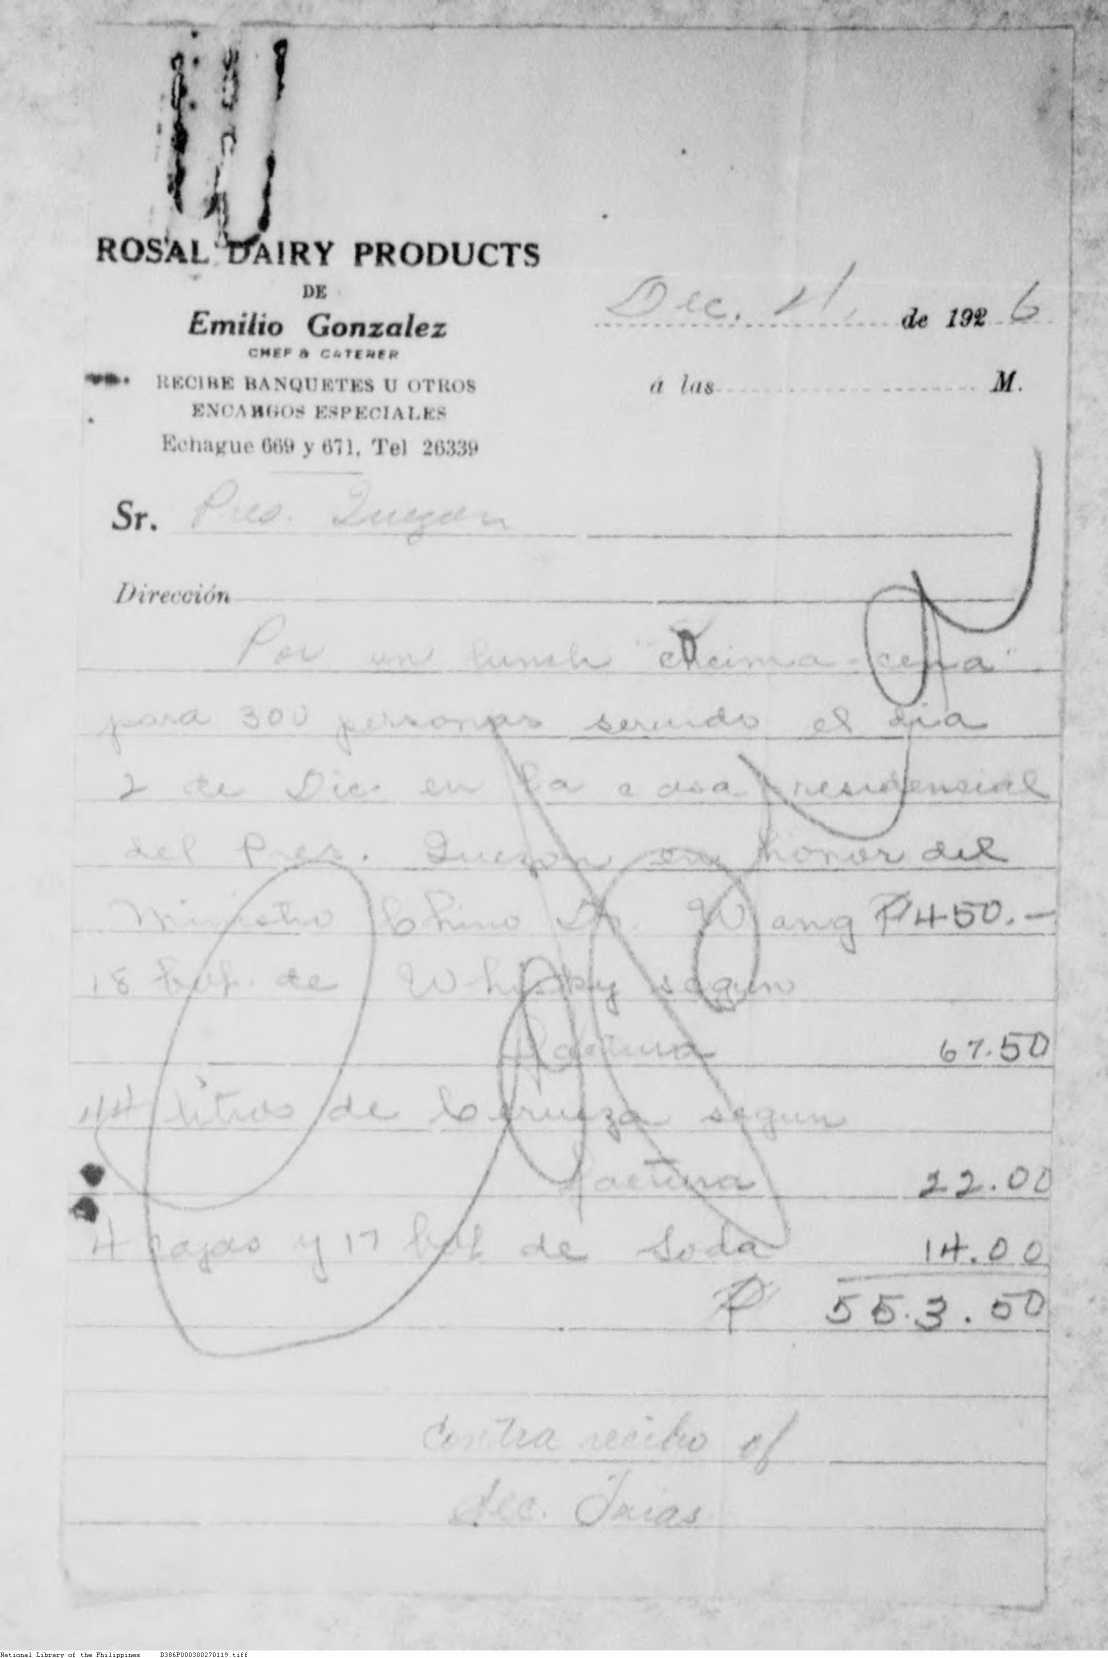 ROSAL DAIRY PRODUCTS
DE
Emilio Gonzalez
CHEF & CATERER
RECIBE BANQUETES U OTROS
ENCARGOS ESPECIALES
Echague 669 y 671, Tel 26339
Dec. 21, de 1926
á las M.
Sr. Pres. Quezon
Dirección
Por un lunch "cena"
para 300 personas servido el dia
2 de Dic. en la casa residencial
del Pres. Quezon en honor del
Ministro Chino Dr. Wang ₱450.—
18 bot. de Whisky segun
factura 67.50
44 litros de Cerveza segun
factura 22.00
4 cajas y 17 bot de Soda 14.00
₱ 553.50
Contra recibo of
Sec. Trias
National Library of the Philippines D386P000300270119.tiff